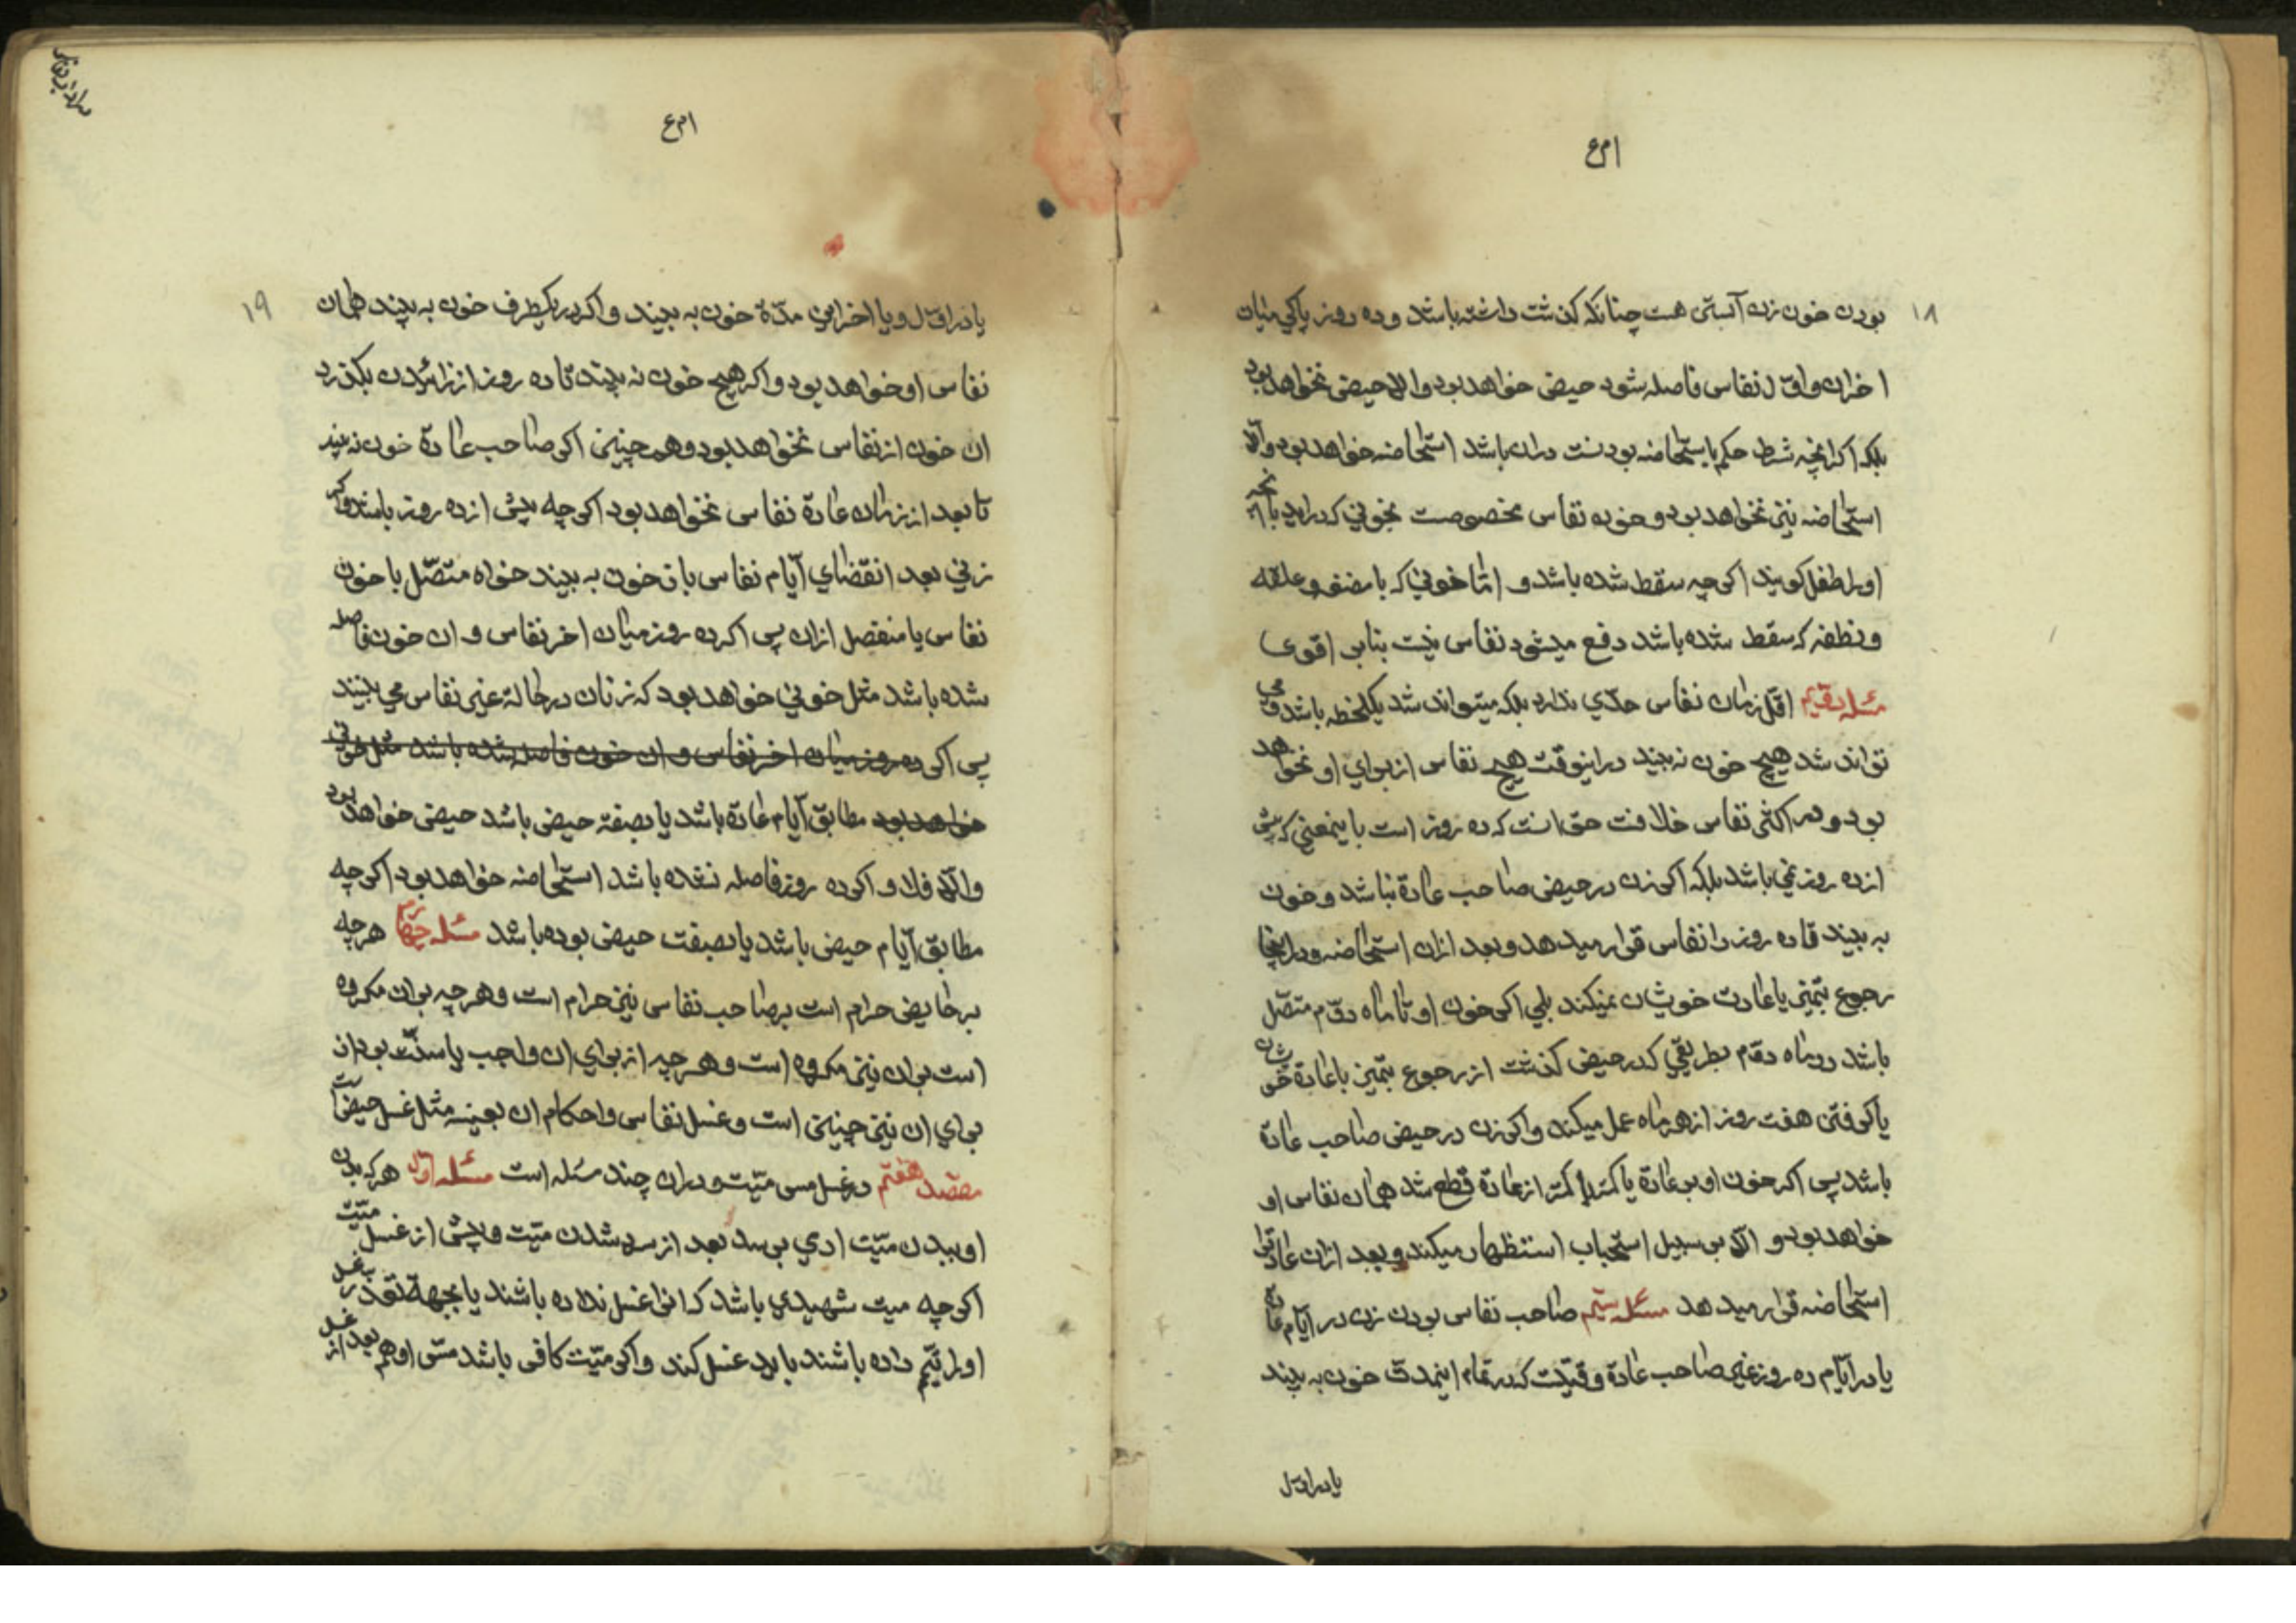 ۱۸
بودن خون زن آبستن هست چنانکه گذشت داشته باشد و ده روز پاکی میان
اخران و اول نفاس فاصله شود حیض خواهد بود والا حیض نخواهد بود
بلکه اگر انچه شرط حکم باستحاضه بودنست دران باشد استحاضه خواهد بود والا
استحاضه نیز نخواهد بود و خون نفاس مخصوصست بخونی که در اید با انچه
او را طفل کویند اگرچه سقط شده باشد و امّا خونی که با مضغه و علقه
و نطفه که سقط شده باشد دفع میشود نفاس نیست بنابر اقوی
مسئله دویّم اقلّ زمان نفاس حدّی ندارد بلکه میتواند شد یکلحظه باشد و می
تواند شد هیچ خون نه بیند در اینوقت هیچ نفاس از برای او نخواهد
بود و در اکثر نفاس خلافست حق انست که ده روز است باینمعنی که بیش
از ده روز نمی باشد بلکه اگر زن در حیض صاحب عادة نباشد و خون
به بیند تا ده روز را نفاس قرار میدهد و بعد ازان استحاضه و در اینجا
رجوع بتمیز یا عادت خویشان نمیکند بلی اگر خون او تا ماه دوّم متصّل
باشد در ماه دوّم بطریقی که در حیض گذشت از رجوع بتمیز یا عادة خویشان
یا گرفتن هفت روز از هر ماه عمل میکند و اگر زن در حیض صاحب عادة
باشد پس اگر خون او بر عادة یا کمتر از عادة قطع شد همان نفاس او
خواهد بود و الّا بر سبیل استحباب استظهار میکند و بعد ازان
استحاضه قرار میدهد مسئله سیّم صاحب نفاس بودن زن در ایّام عادة
یا در ایّام ده روز غیر صاحب عادة وقتیست که در تمام اینمدّت خون به بیند
یا در اوّل
۱۹
یا در اوّل و یا اخر این مدّة خون به بیند و اگر در یکطرف خون به بیند همان
نفاس او خواهد بود و اگر هیچ خون نه بیند تا ده روز از زائیدن بگذرد
ان خون از نفاس نخواهد بود و همچنین اگر صاحب عادة خون نه بیند
تا بعد از زمان عادة نفاس نخواهد بود اگرچه پیش از ده روز باشد و اگر
زنی بعد انقضای ایّام نفاس باز خون به بیند خواه متصّل با خون
نفاس یا منفصل ازان پس اگر ده روز میان اخر نفاس و ان خون فاصله
شده باشد مثل خونی خواهد بود که زنان در حالة غیر نفاس می بینند
پس اگر ده روز میان اخر نفاس و ان خون فاصله شده باشد مثل خونی
خواهد بود مطابق ایّام عادة باشد یا بصفة حیض باشد حیض خواهد بود
والّا فلا و اگر ده روز فاصله نشده باشد استحاضه خواهد بود اگرچه
مطابق ایّام حیض باشد یا بصفت حیض بوده باشد مسئله چهارم هر چه
بر حایض حرام است بر صاحب نفاس نیز حرام است و هر چه بر ان مکروه
است بر ان نیز مکروه است و هر چه از برای ان واجب یا سنّت بود از
برای ان نیز چنین است و غسل نفاس و احکام ان بعینه مثل غسل حیض است
مقصد هفتم در غسل مس میّت و دران چند مسئله است مسئله اوّل هر که بدن
او ببدن میّت ادمی برسد بعد از سرد شدن میّت و پیش از غسل میّت
اگرچه میت شهیدی باشد که انرا غسل نداده باشند یا بجهة تعذر غسل
او را تیمّم داده باشند باید غسل کند و اگر میّت کافر باشد مسّ او هم بعد از غسل